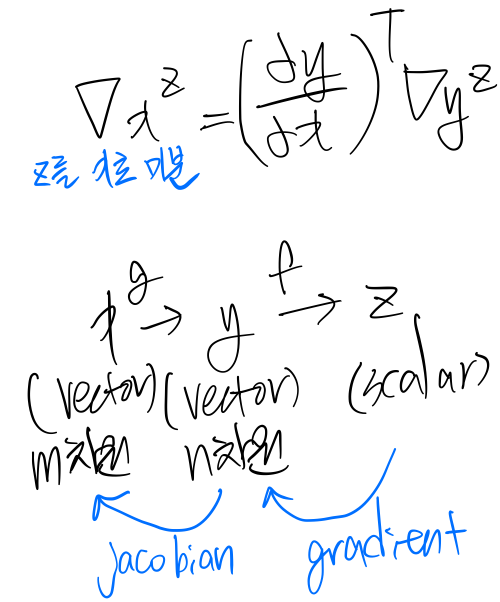 ∇x z = (∂y/∂x)ᵀ ∇y z
z를 x로 미분
x →g y →f z
(vector) (vector) (scalar)
m차원 n차원
jacobian gradient